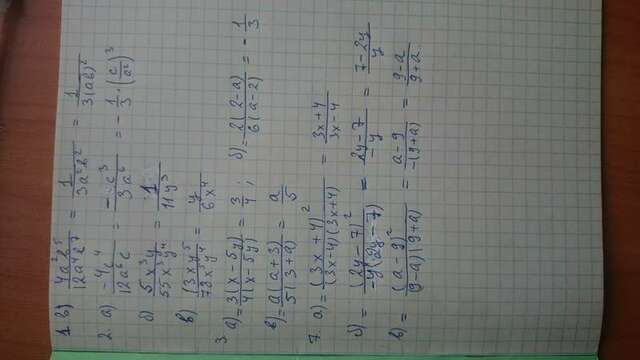 1. в) 4a²b⁵ / 12a⁴b⁷ = 1 / 3a²b² = 1 / 3(ab)²
2. а) -4c⁴ / 12a⁶c = -c³ / 3a⁶ = -1/3 · (c/a²)³
б) 5x³y / 55x³y⁴ = 1 / 11y³
в) 13xy⁵ / 78x⁵y⁴ = y / 6x⁴
3. а) = 3(x-5y) / 4(x-5y) = 3/4 ; б) = 2(2-a) / 6(a-2) = -1/3
в) = a(a+3) / 5(3+a) = a/5
7. а) = (3x+4)² / (3x-4)(3x+4) = 3x+4 / 3x-4
б) = (2y-7)² / -y(2y-7) = 2y-7 / -y = 7-2y / y
в) = (a-9)² / (9-a)(9+a) = a-9 / -(9+a) = 9-a / 9+a